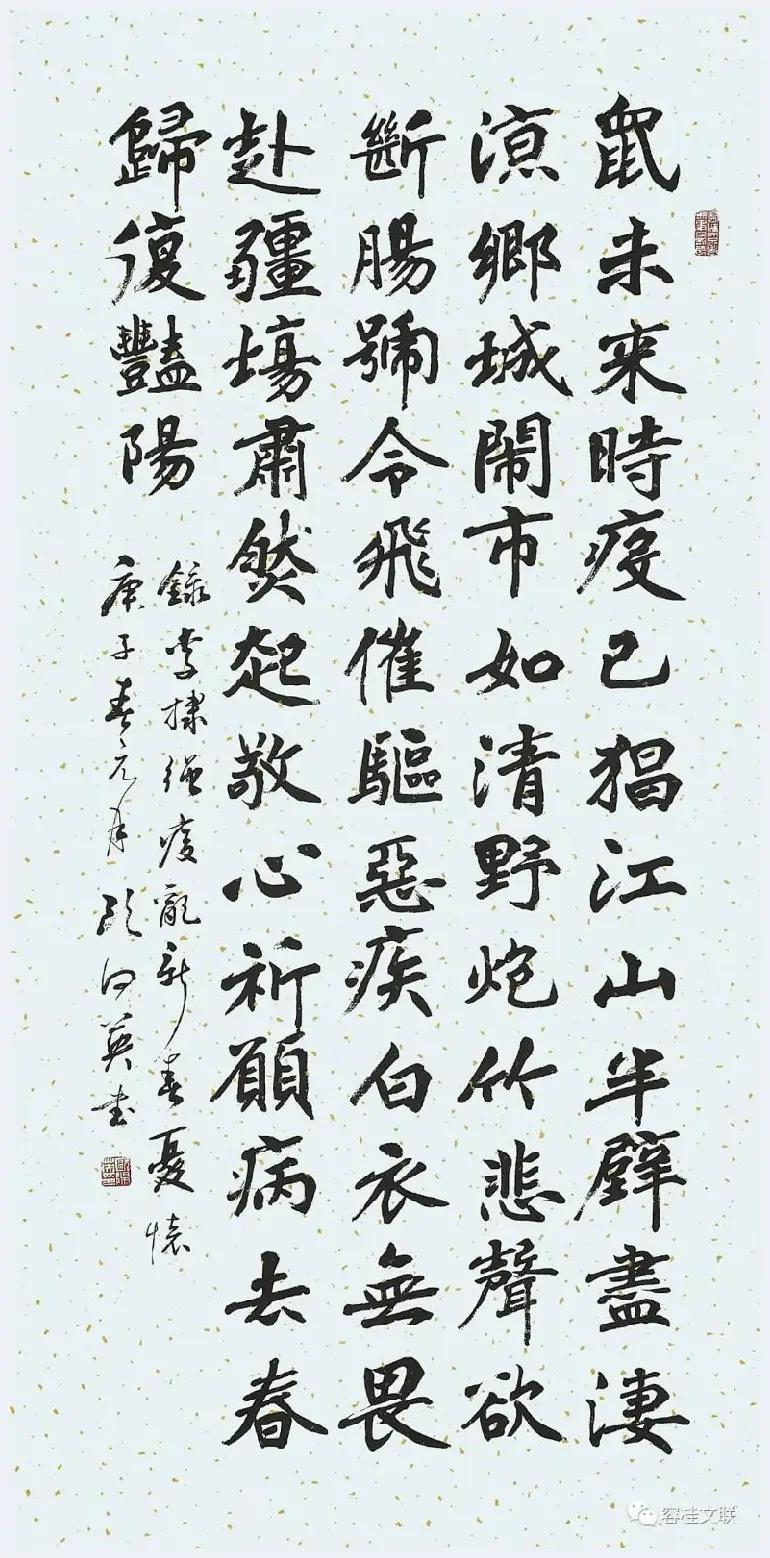 鼠未來時疫已猖江山半壁盡淒
涼鄉城鬧市如清野炮竹悲聲欲
斷腸號令飛催驅惡疾白衣無畏
赴疆場肅然起敬心祈願病去春
歸復豔陽
錄李棣強疫亂新春憂懷
庚子春元月 歐向英書
容桂文联